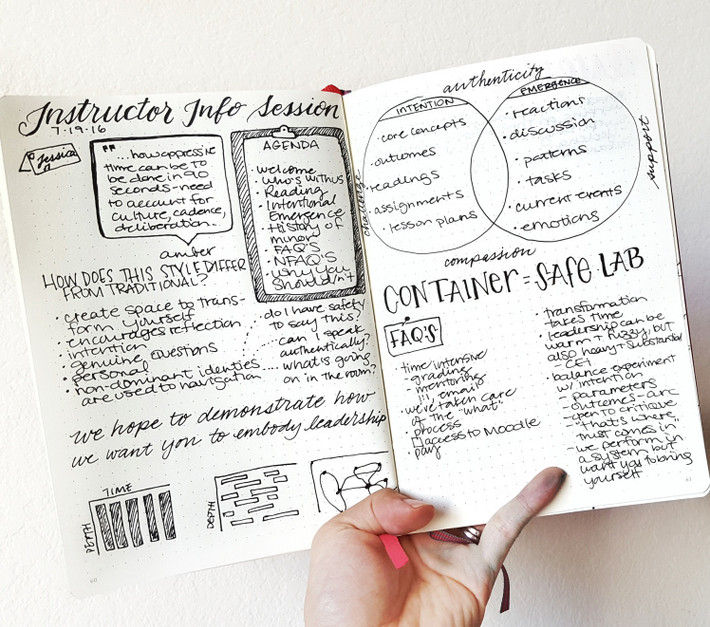 Instructor Info Session
7.19.16
Jessica
"...how oppressive
time can be to
be done in 90
seconds-need
to account for
culture, cadence,
deliberation...
amber
AGENDA
welcome
• who's with us
• Reading
• Intentional
Emergence
• History of
minor
• FAQ'S
• NFAQ'S
• why you
shouldn't
HOW DOES THIS STYLE DIFFER
FROM TRADITIONAL?
• create space to trans-
form yourself
• encourages reflection
• intention
• genuine questions
• personal
• non-dominant identies
are used to navigation
do I have safety
to say this?
can I speak
authentically?
what is going
on in the room?
we hope to demonstrate how
we want you to embody leadership
TIME
DEPTH
DEPTH
60
authenticity
INTENTION
• core concepts
• outcomes
• readings
• assignments
• lesson plans
EMERGENCE
• reactions
• discussion
• patterns
• tasks
• current events
• emotions
support
compassion
CONTAINER = SAFE LAB
FAQ'S
• time intensive
- grading
- mentoring
- 1:1, email
• we're taken care
of the "what"
• process
• access to Moodle
• pay
• transformation
takes time
• leadership can be
warm + fuzzy, but
also heavy + substantial
- CET
• balance experiment
w/ intention
- parameters
- outcomes - arc
- open to critique
- that's where
trust comes in
- we perform in
a system, but
want you to bring
yourself
61